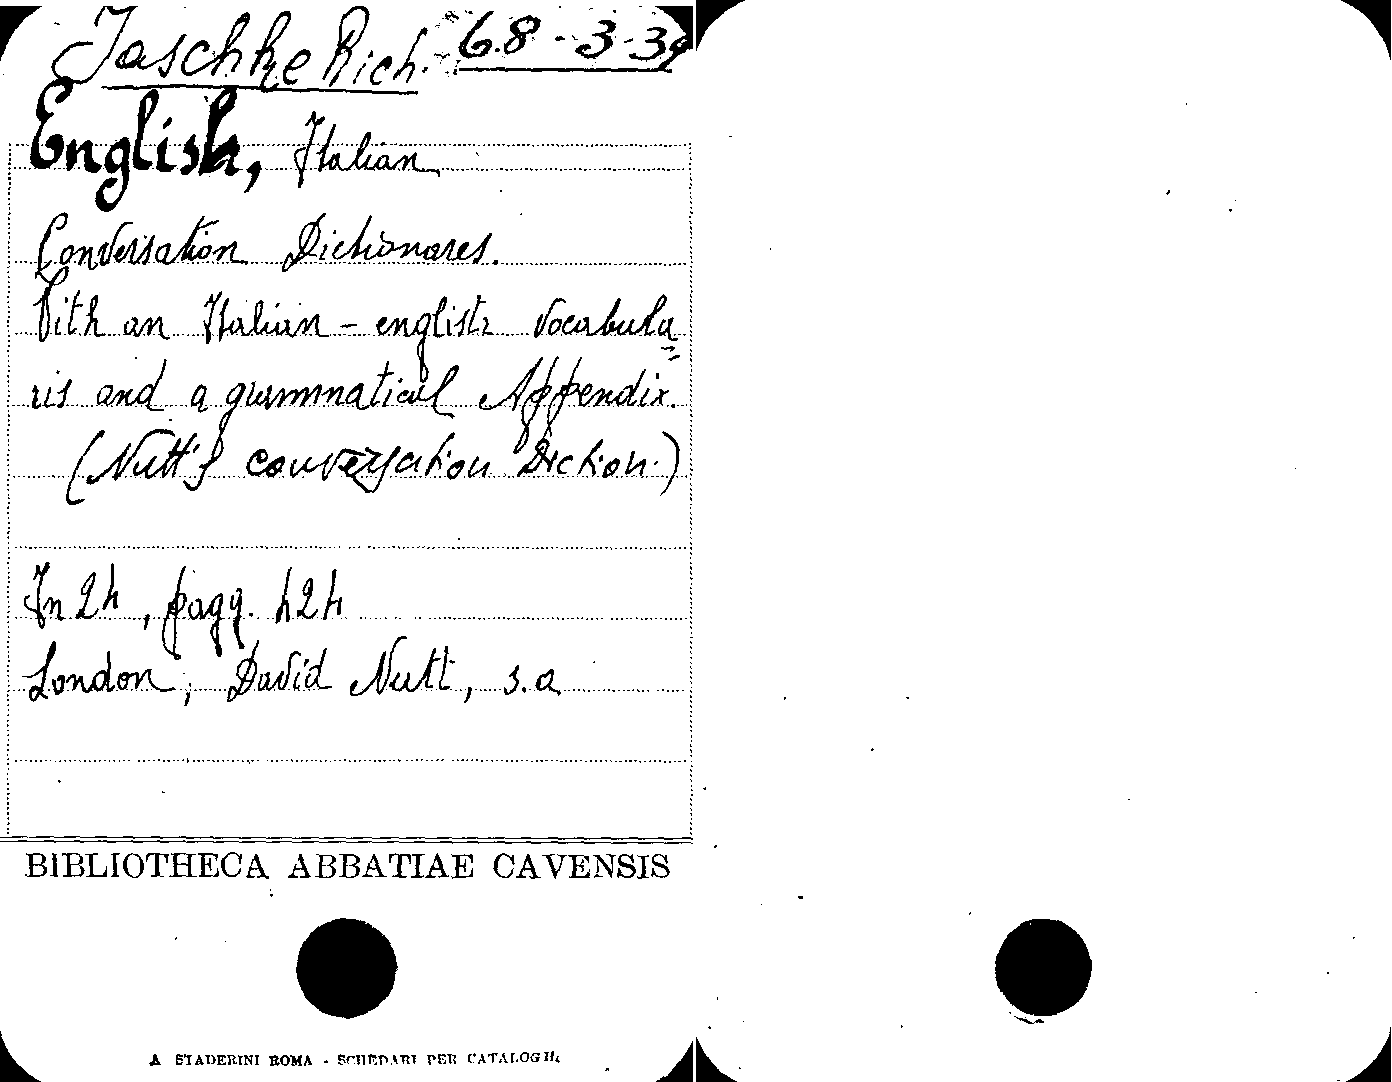 Jaschke Rich. 68-3-39
English, Italian
Conversation Dictionares.
Vith an Italian - english vocabula=
ris and a grammatical Appendix.
(Nutt's conversation Diction.)
In 24, pagg. 424
London, David Nutt, s.a
BIBLIOTHECA ABBATIAE CAVENSIS
A STADERINI ROMA - SCHEDARI PER CATALOGHI